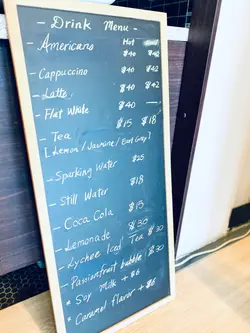 - Drink Menu -
Hot
- Americano $40 $42
- Cappuccino $40 $42
- Latte $40 $42
- Flat White $40 —
- Tea $15 $18
[Lemon / Jasmine / Earl Grey]
- Sparking Water $25
- Still Water $18
- Coca Cola $15
- Lemonade $30
- Lychee Iced Tea $30
- Passionfruit bubble $30
* Soy Milk + $6
* Caramel flavor + $6